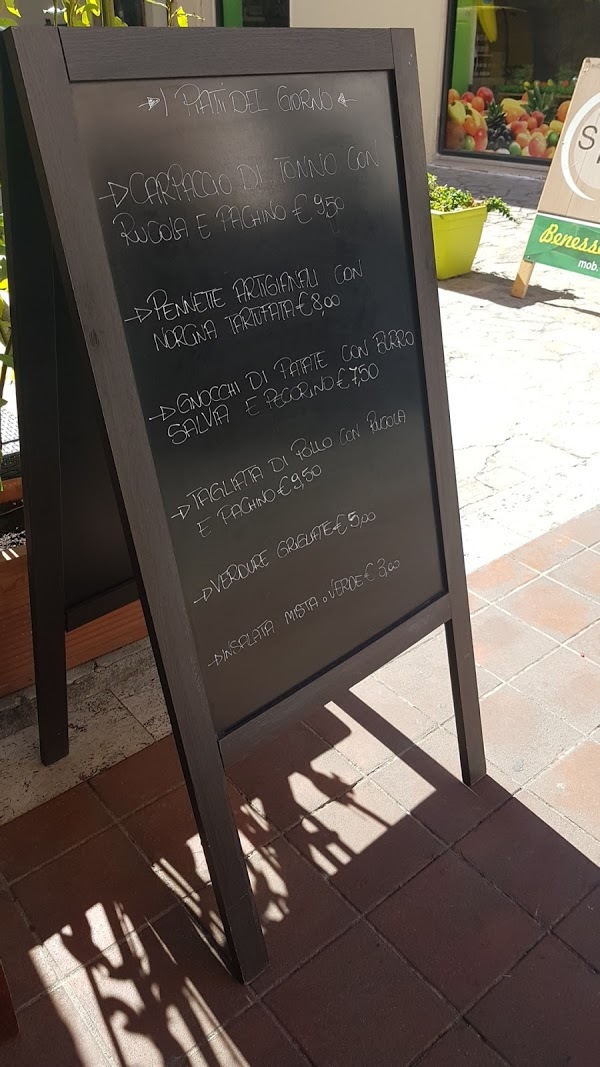 I PIATTI DEL GIORNO
CARPACCIO DI TONNO CON
RUCOLA E PACHINO € 9,50
PENNETTE ARTIGIANALI CON
NORCINA TARTUFATA € 8,00
GNOCCHI DI PATATE CON BURRO
SALVIA E PECORINO € 7,50
TAGLIATA DI POLLO CON RUCOLA
E PACHINO € 9,50
VERDURE GRIGLIATE € 5,00
INSALATA MISTA o VERDE € 3,00
S
Benesse
mob.